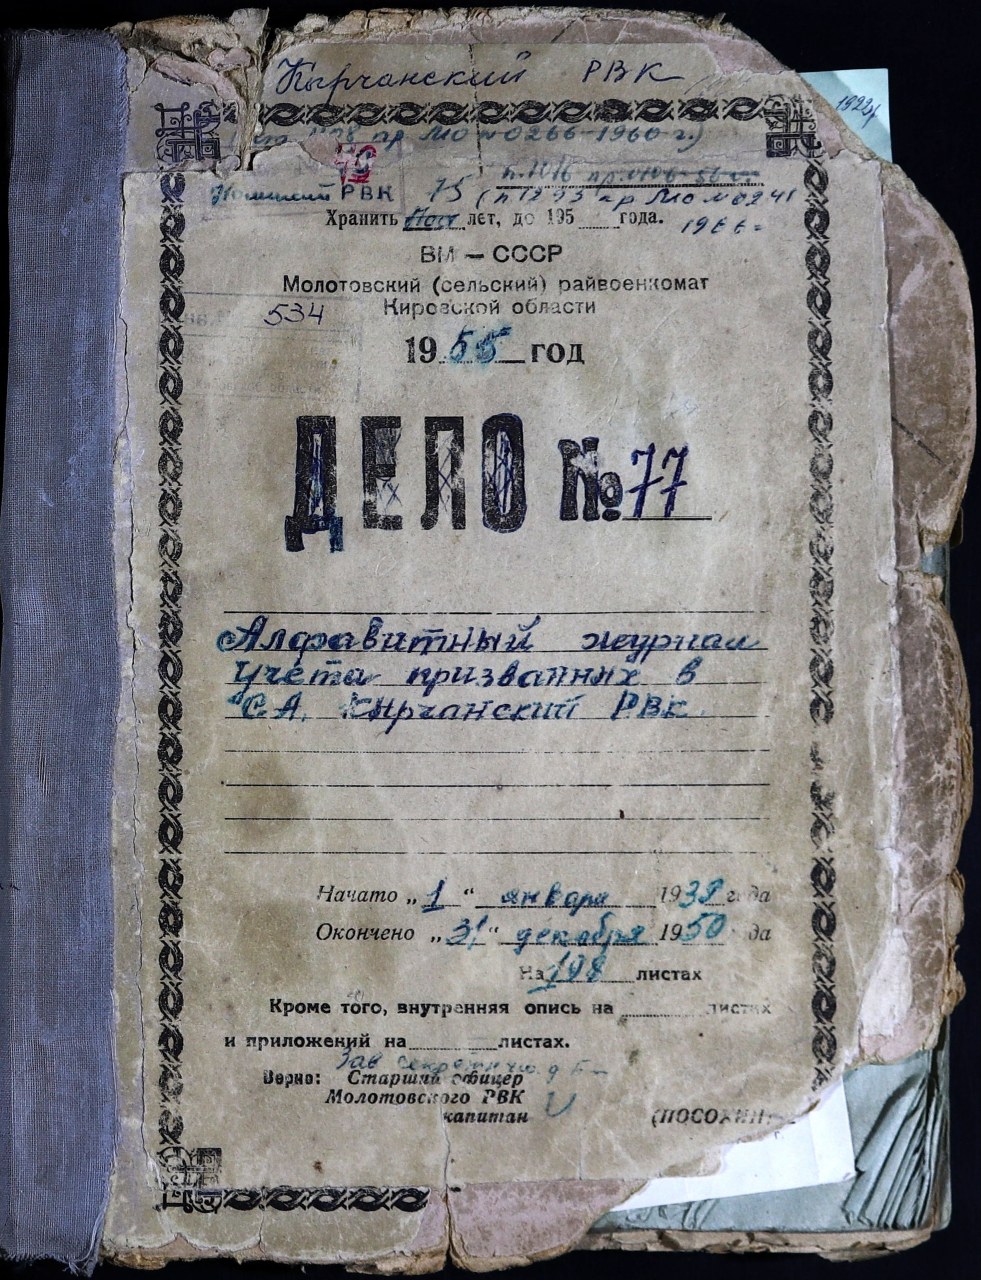 Кырчанский РВК
1922г
пр МО № 0266-1960 г.)
Нолинский РВК 75 (п 1293 пр МО № 0241
Хранить Пост лет, до 195 года. 1966
ВМ – СССР
Молотовский (сельский) райвоенкомат
Кировской области
534
1955 год
ДЕЛО №77
Алфавитный журнал
учёта призванных в
С.А. Кырчанский РВК
Начато „1“ января 1939 года
Окончено „31“ декабря 1950 года
На 198 листах
Кроме того, внутренняя опись на листах
и приложений на листах.
Зав
Верно: Старший офицер
Молотовского РВК
капитан (ПОСОХИН)